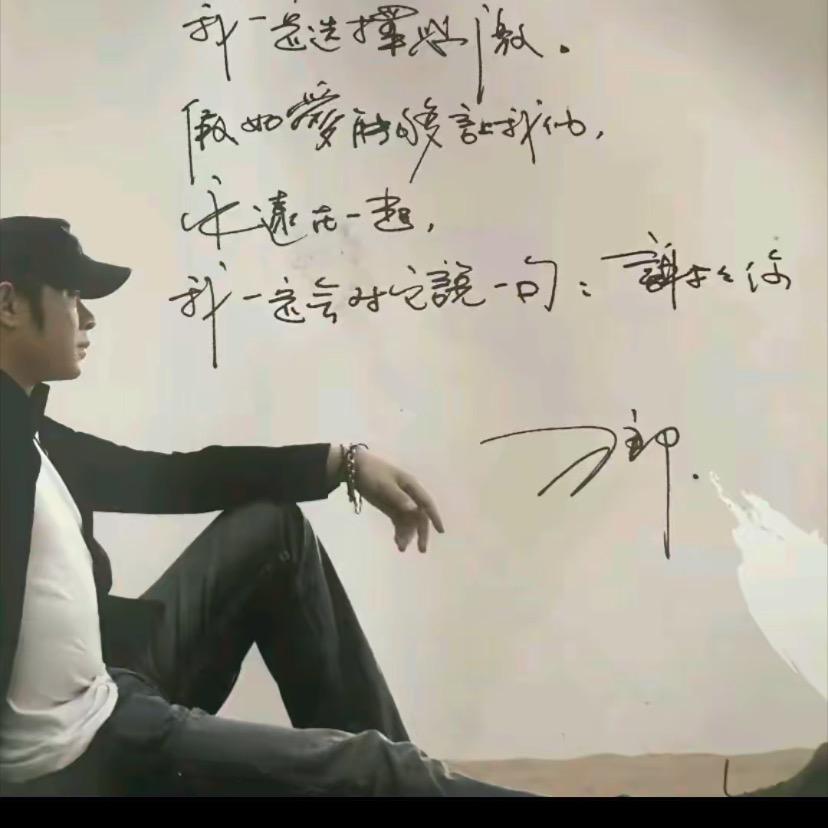 我一定选擇感激。
假如愛能够让我们,
永遠在一起,
我一定会对它説一句：謝謝你
刀郎.